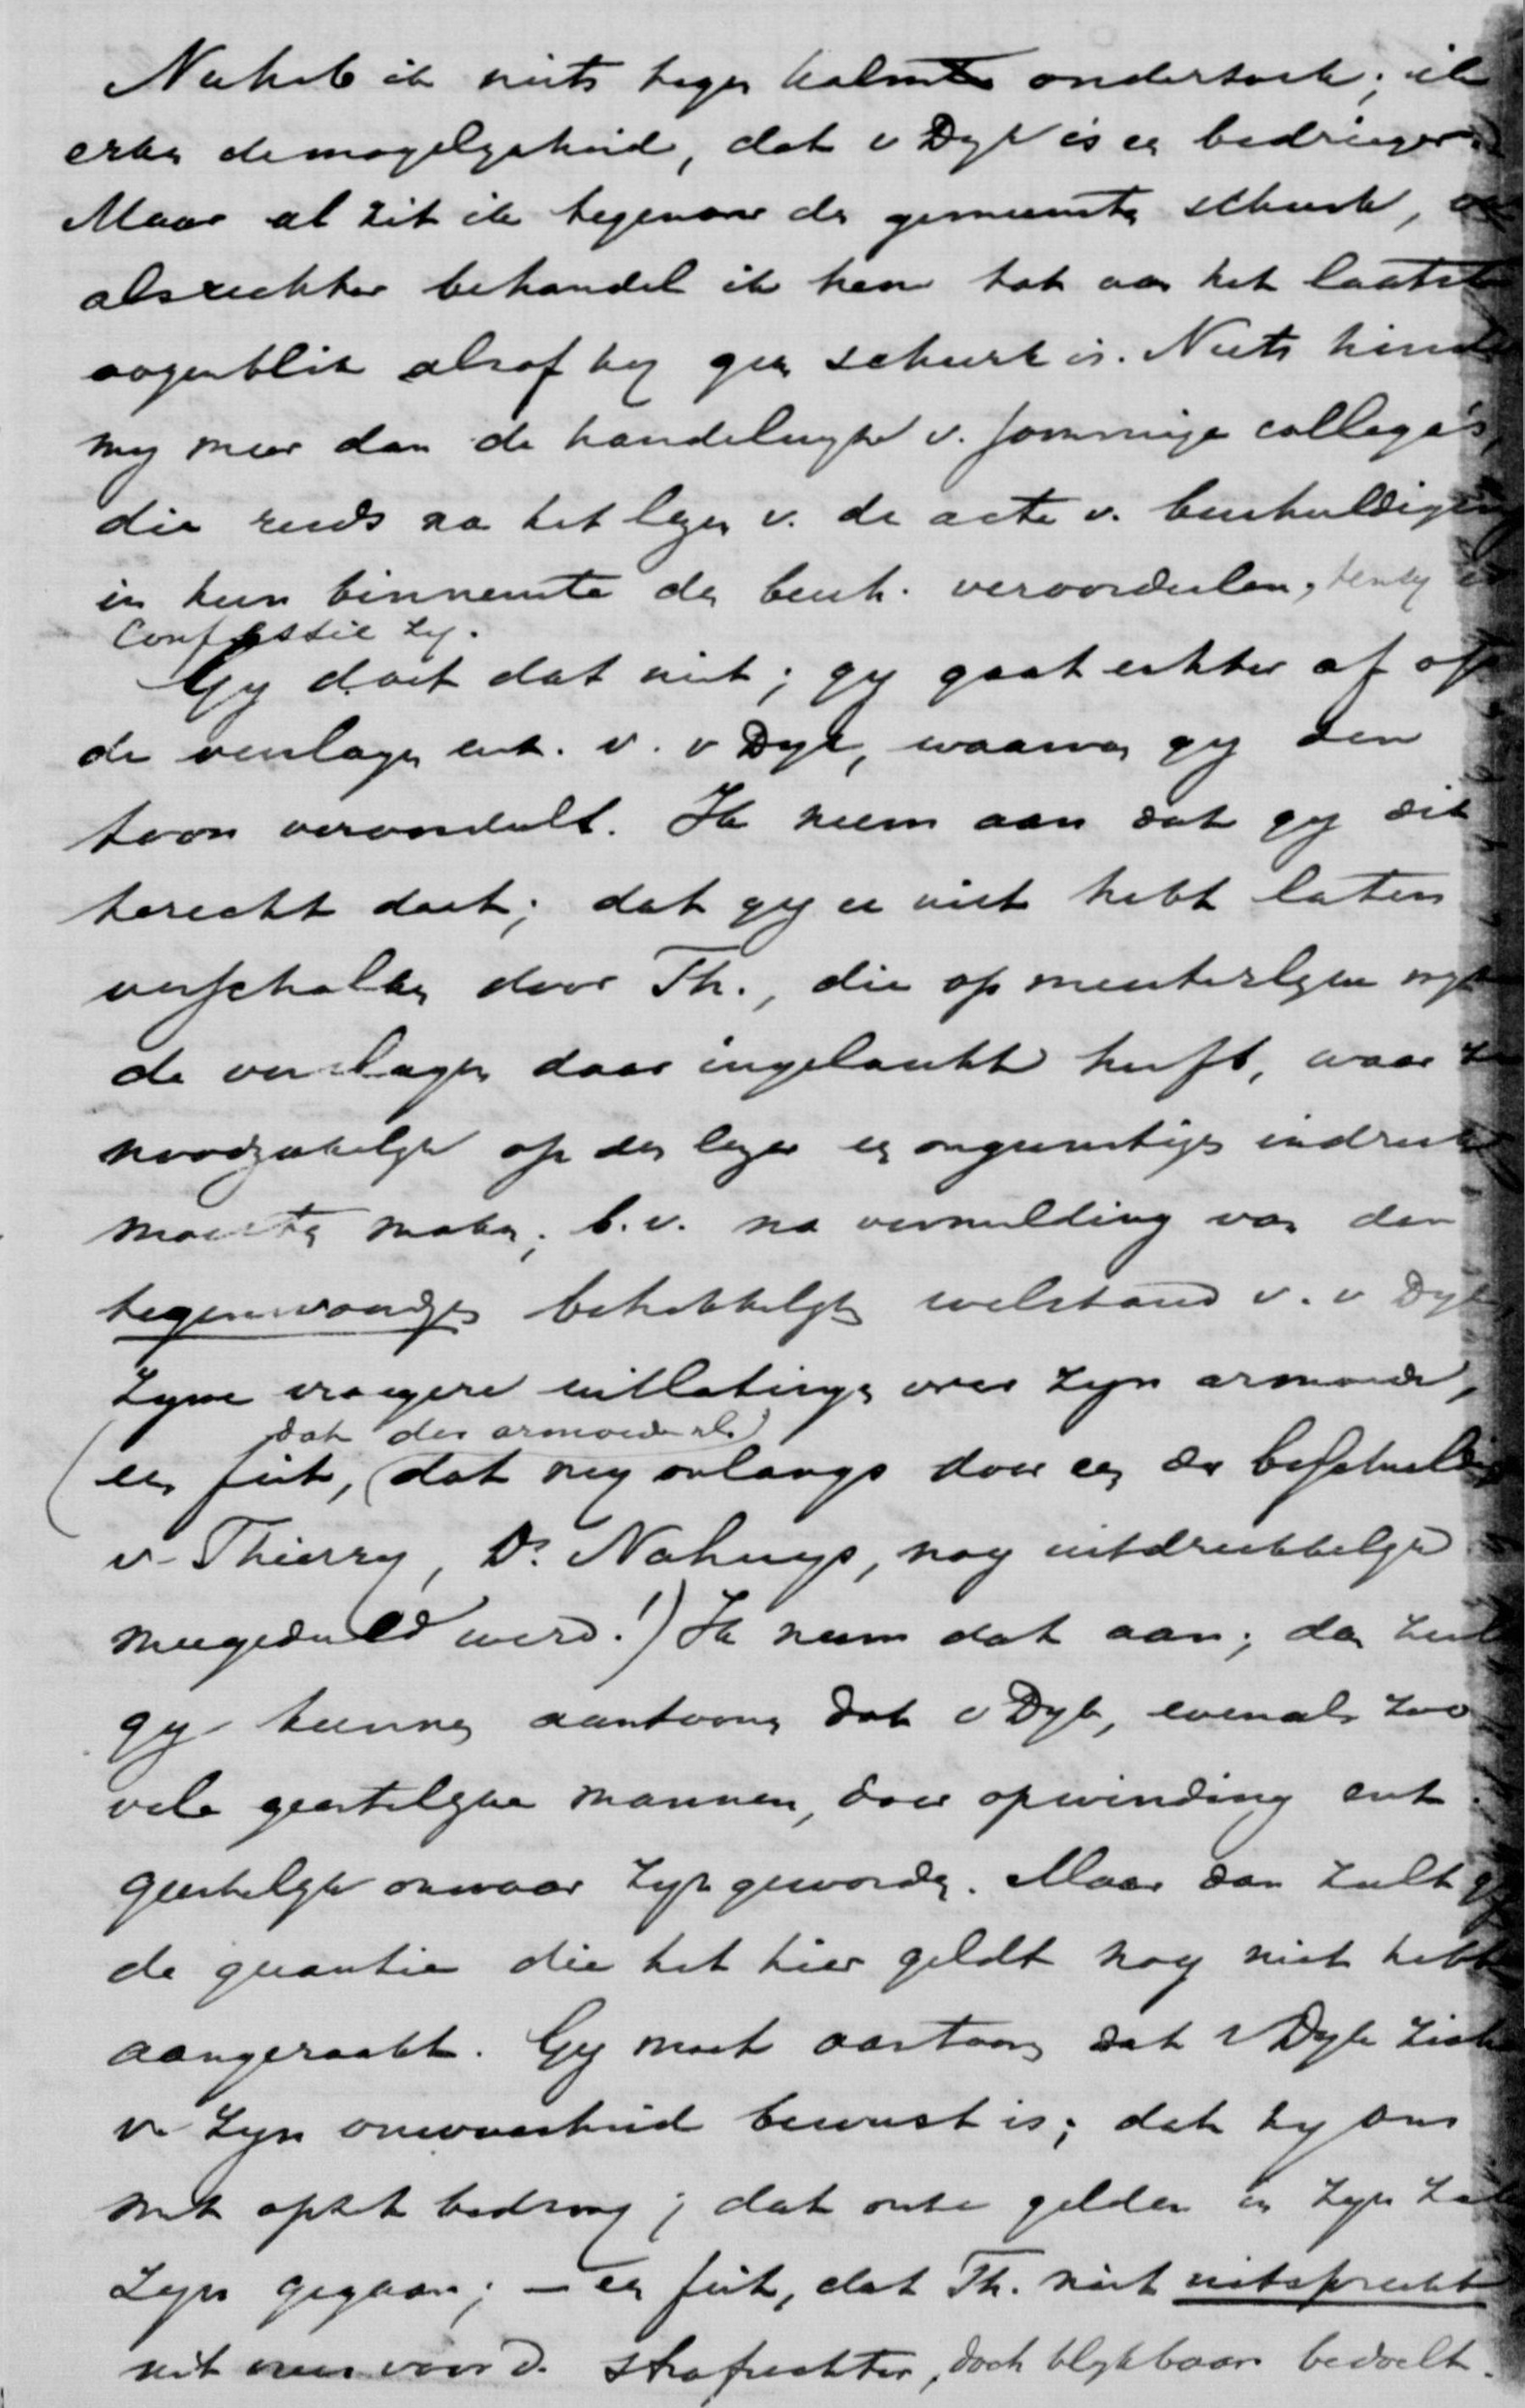 Nu heb ik niets tegen kalmte onderzoek; ik
erken de mogelykheid, dat v Dyk is een bedrieger.
Maar al zit ik tegenover den gemeensten schurk,
als rechter behandel ik hem tot aan het laatste
oogenblik alsof hy geen schurk is. Niets hindert
my meer dan de handelwyze v. sommige collega's,
die reeds na het lezen v. de acte v. beschuldiging
in hun binnenste den besch. veroordeelen, tenzy er
confessie zy.
Gy doet dat niet; gy gaat echter af op
de verslagen enz. v. v Dyk, waarvan gy den
toon veroordeelt. Ik neem aan dat gy dit
terecht doet; dat gy u niet hebt laten
verschalken door Th., die op meesterlyke wyze
de verslagen daar ingelascht heeft, waar ze
noodzakelyk op den lezer een ongunstigen indruk
moesten maken; b.v. na vermelding van den
tegenwoordigen betrekkelyken welstand v. v Dyk
zyne vroegere uitlatingen over zyn armoede,
dat der armoede nl.
(een feit, dat my onlangs door een der beschuldigers
v. Thierry, Dr. Nahuys, nog uitdrukkelyk
meegedeeld werd!) Ik neem dat aan; dan zult
gy kunnen aantoonen dat v Dyk, evenals zoo
vele geestelyke mannen, door opwinding enz.
geestelyk onwaar zyn geworden. Maar dan zult gy
de quaestie die het hier geldt nog niet hebben
aangeraakt. Gy moet aantoonen dat v Dyk zich
v. zyn onwaarheid bewust is; dat hy ons
met opzet bedroog; dat onze gelden in zyn zak
zyn gegaan; — een feit, dat Th. niet uitspreekt
uit vrees voor d. strafrechter, doch blykbaar bedoelt.